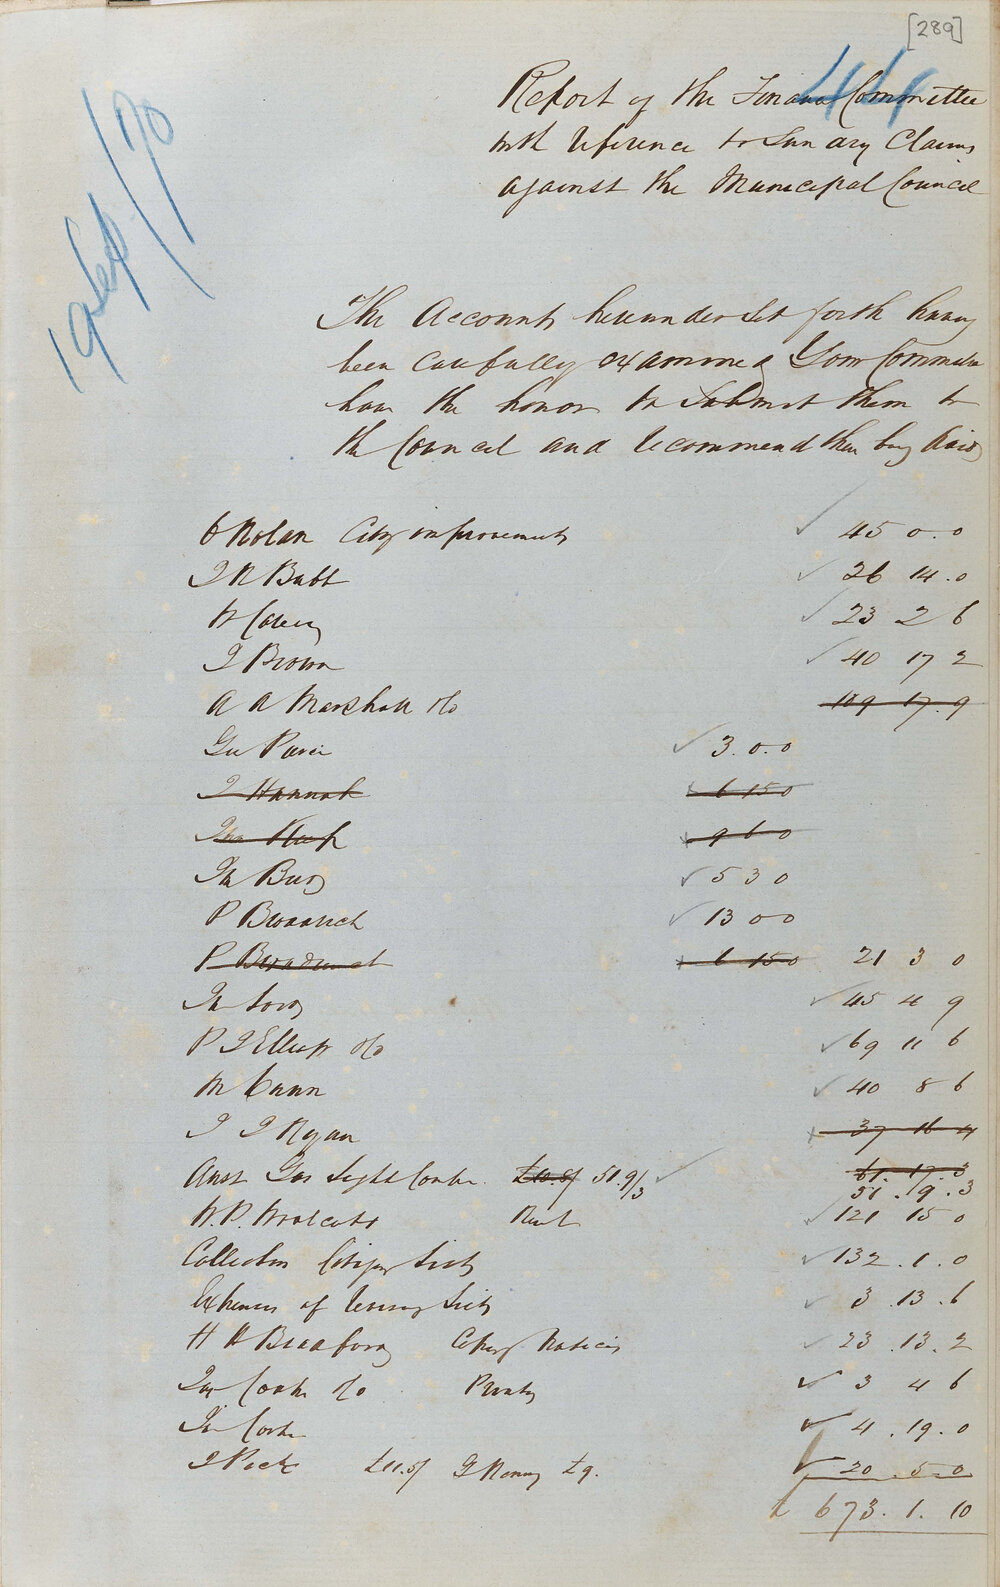 [289]
44
19 Sep/70
Report of the Finance Committee
with reference to Sundry Claims
against the Municipal Council
The Accounts hereunder set forth having
been carefully examined Your Committee
have the honor to submit them to
the Council and recommend their being paid
Nolan City improvements 45 0.0
J R Bubb 26 14.0
W 23 2 6
J Brown 40 17 2
A A Marshall do 109 17.9
Geo 3.0.0
J Hannah 6 15 0
9 6 0
Jn 5 3 0
P 13 0 0
P 6 15 0 21 3 0
Jn 45 4 9
P J Elliott do 69 11 6
M Cunn 40 8 6
J J Ryan 37 16 4
Aust Gas Light Comp. £10.8/ 51.9/3 61.17.3
51.9.3
W.P. Woolcott Rent 121 15 0
Collectors Citizens Lists 132.1.0
Expenses of revising Lists 3.13.6
H Bradford Copying Notices 23.13.2
Jos Cook do Printing 3 4 6
Jn Cook 4.19.0
J Peek £11.5/ J £9. 20.5.0
£ 673.1.10